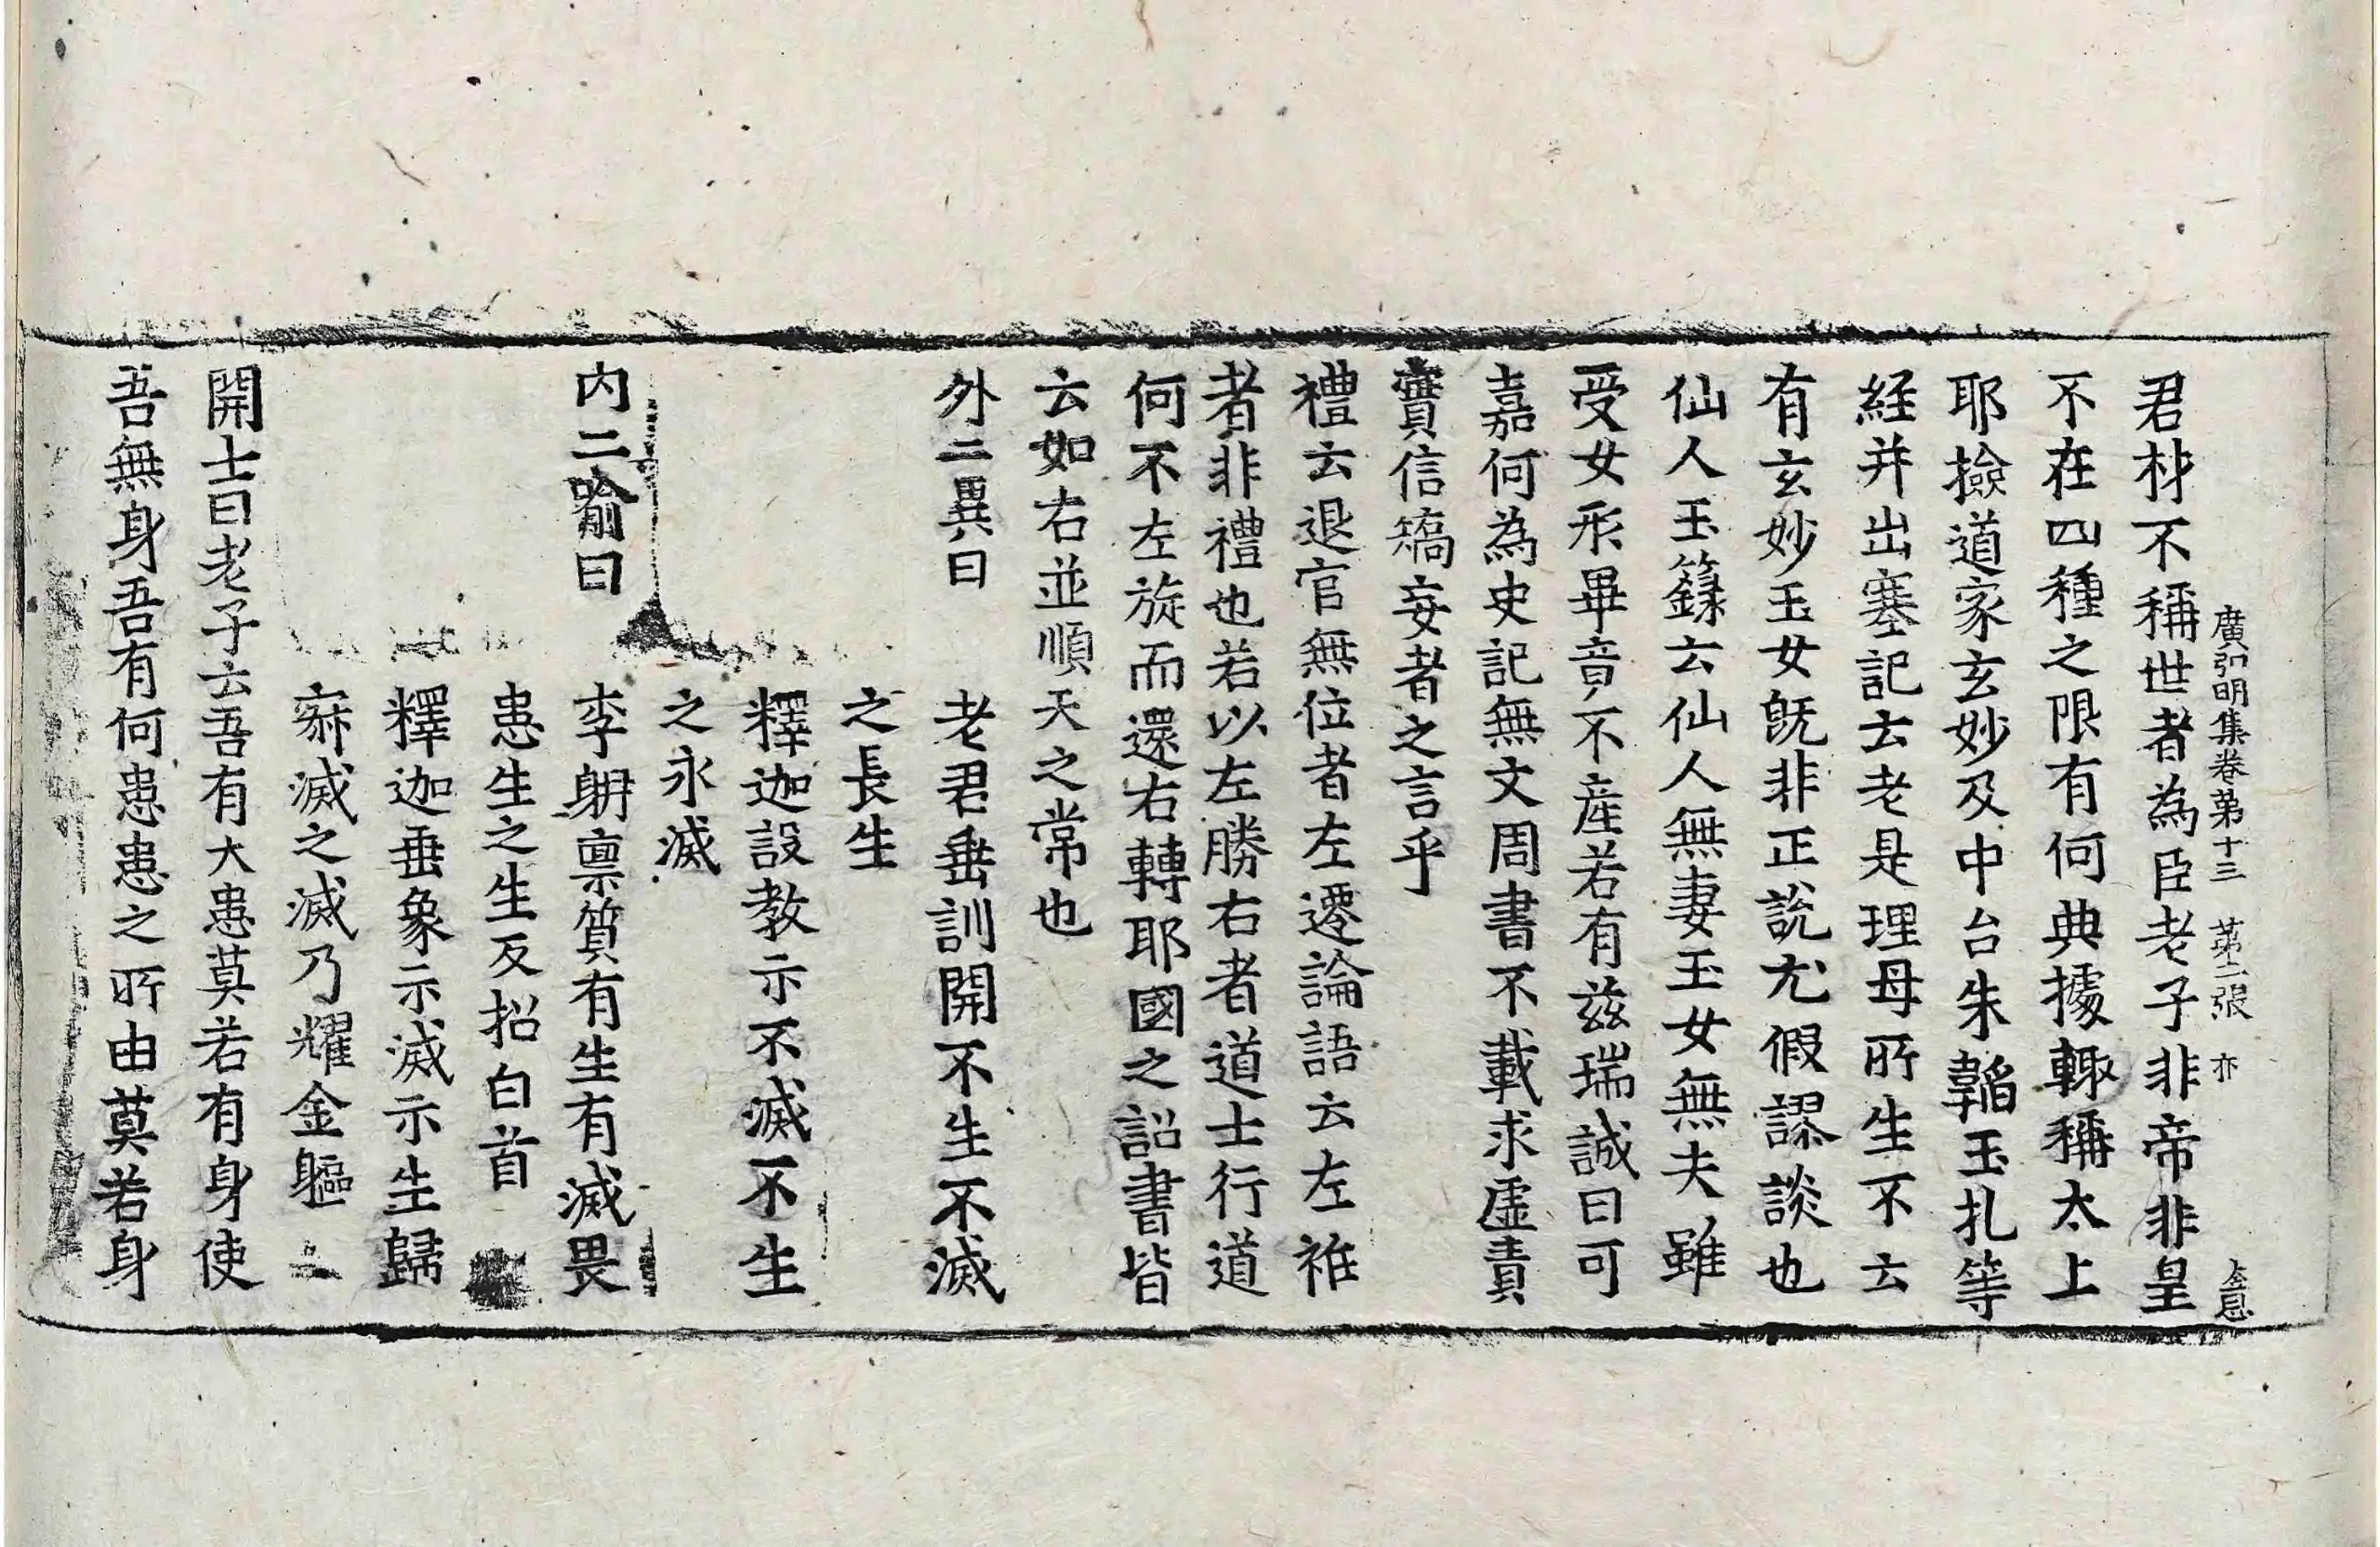 廣弘明集卷第十三 第二張 亦
君材不稱世者為臣老子非帝非皇
不在四種之限有何典據輙稱太上
耶撿道家玄妙及中台朱韜玉扎等
経并出塞記云老是理母所生不云
有玄妙玉女旣非正說尤假謬談也
仙人玉籙云仙人無妻玉女無夫雖
受女形畢竟不産若有茲瑞誠曰可
嘉何為史記無文周書不載求虛責
實信矯妄者之言乎
禮云退官無位者左遷論語云左衽
者非禮也若以左勝右者道士行道
何不左旋而還右轉耶國之詔書皆
云如右並順天之常也
外二異曰 老君垂訓開不生不滅
之長生
釋迦設教示不滅不生
之永滅
内二喻曰 李耼禀質有生有滅畏
患生之生反招白首
釋迦垂象示滅示生歸
寂滅之滅乃耀金軀
開士曰老子云吾有大患莫若有身使
吾無身吾有何患患之所由莫若身